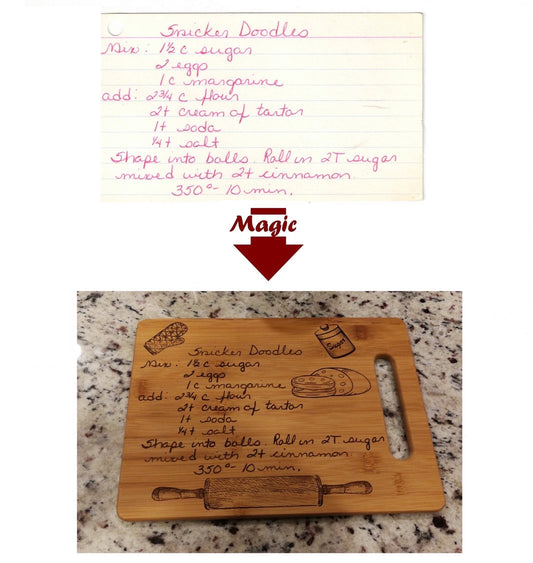 Snicker Doodles
Mix: 1½ c sugar
2 eggs
1 c margarine
add: 2¾ c flour
2t cream of tartar
1t soda
¼t salt
Shape into balls. Roll in 2T sugar
mixed with 2t cinnamon.
350°- 10 min.
Magic
Snicker Doodles
Sugar
Mix: 1½ c sugar
2 eggs
1 c margarine
add: 2¾ c flour
2t cream of tartar
1t soda
¼t salt
Shape into balls. Roll in 2T sugar
mixed with 2t cinnamon
350°- 10 min.